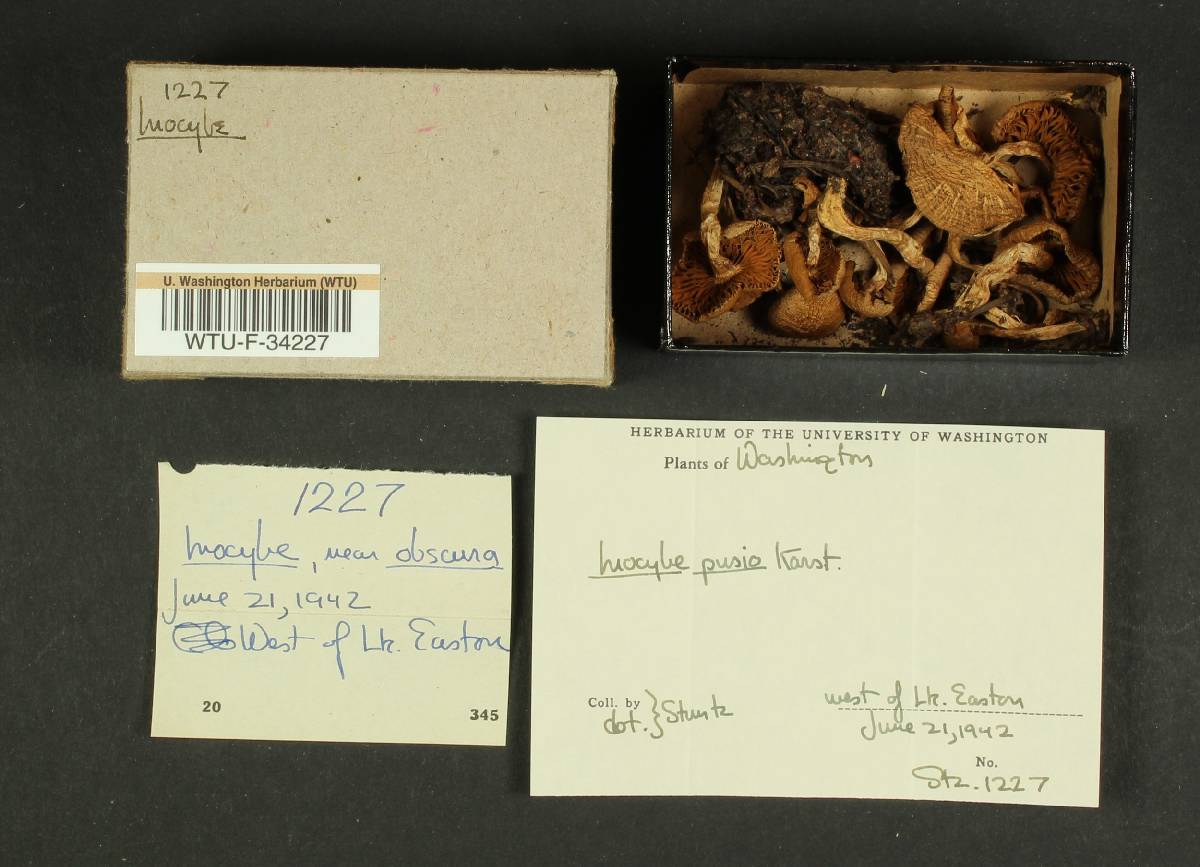 1227
Inocybe
U. Washington Herbarium (WTU)
WTU-F-34227
1227
Inocybe, near obscura
June 21, 1942
West of Lk. Easton
20 345
HERBARIUM OF THE UNIVERSITY OF WASHINGTON
Plants of Washington
Inocybe pusio Karst.
Coll. by
det. } Stuntz
west of Lk. Easton
June 21, 1942
No.
Stz. 1227